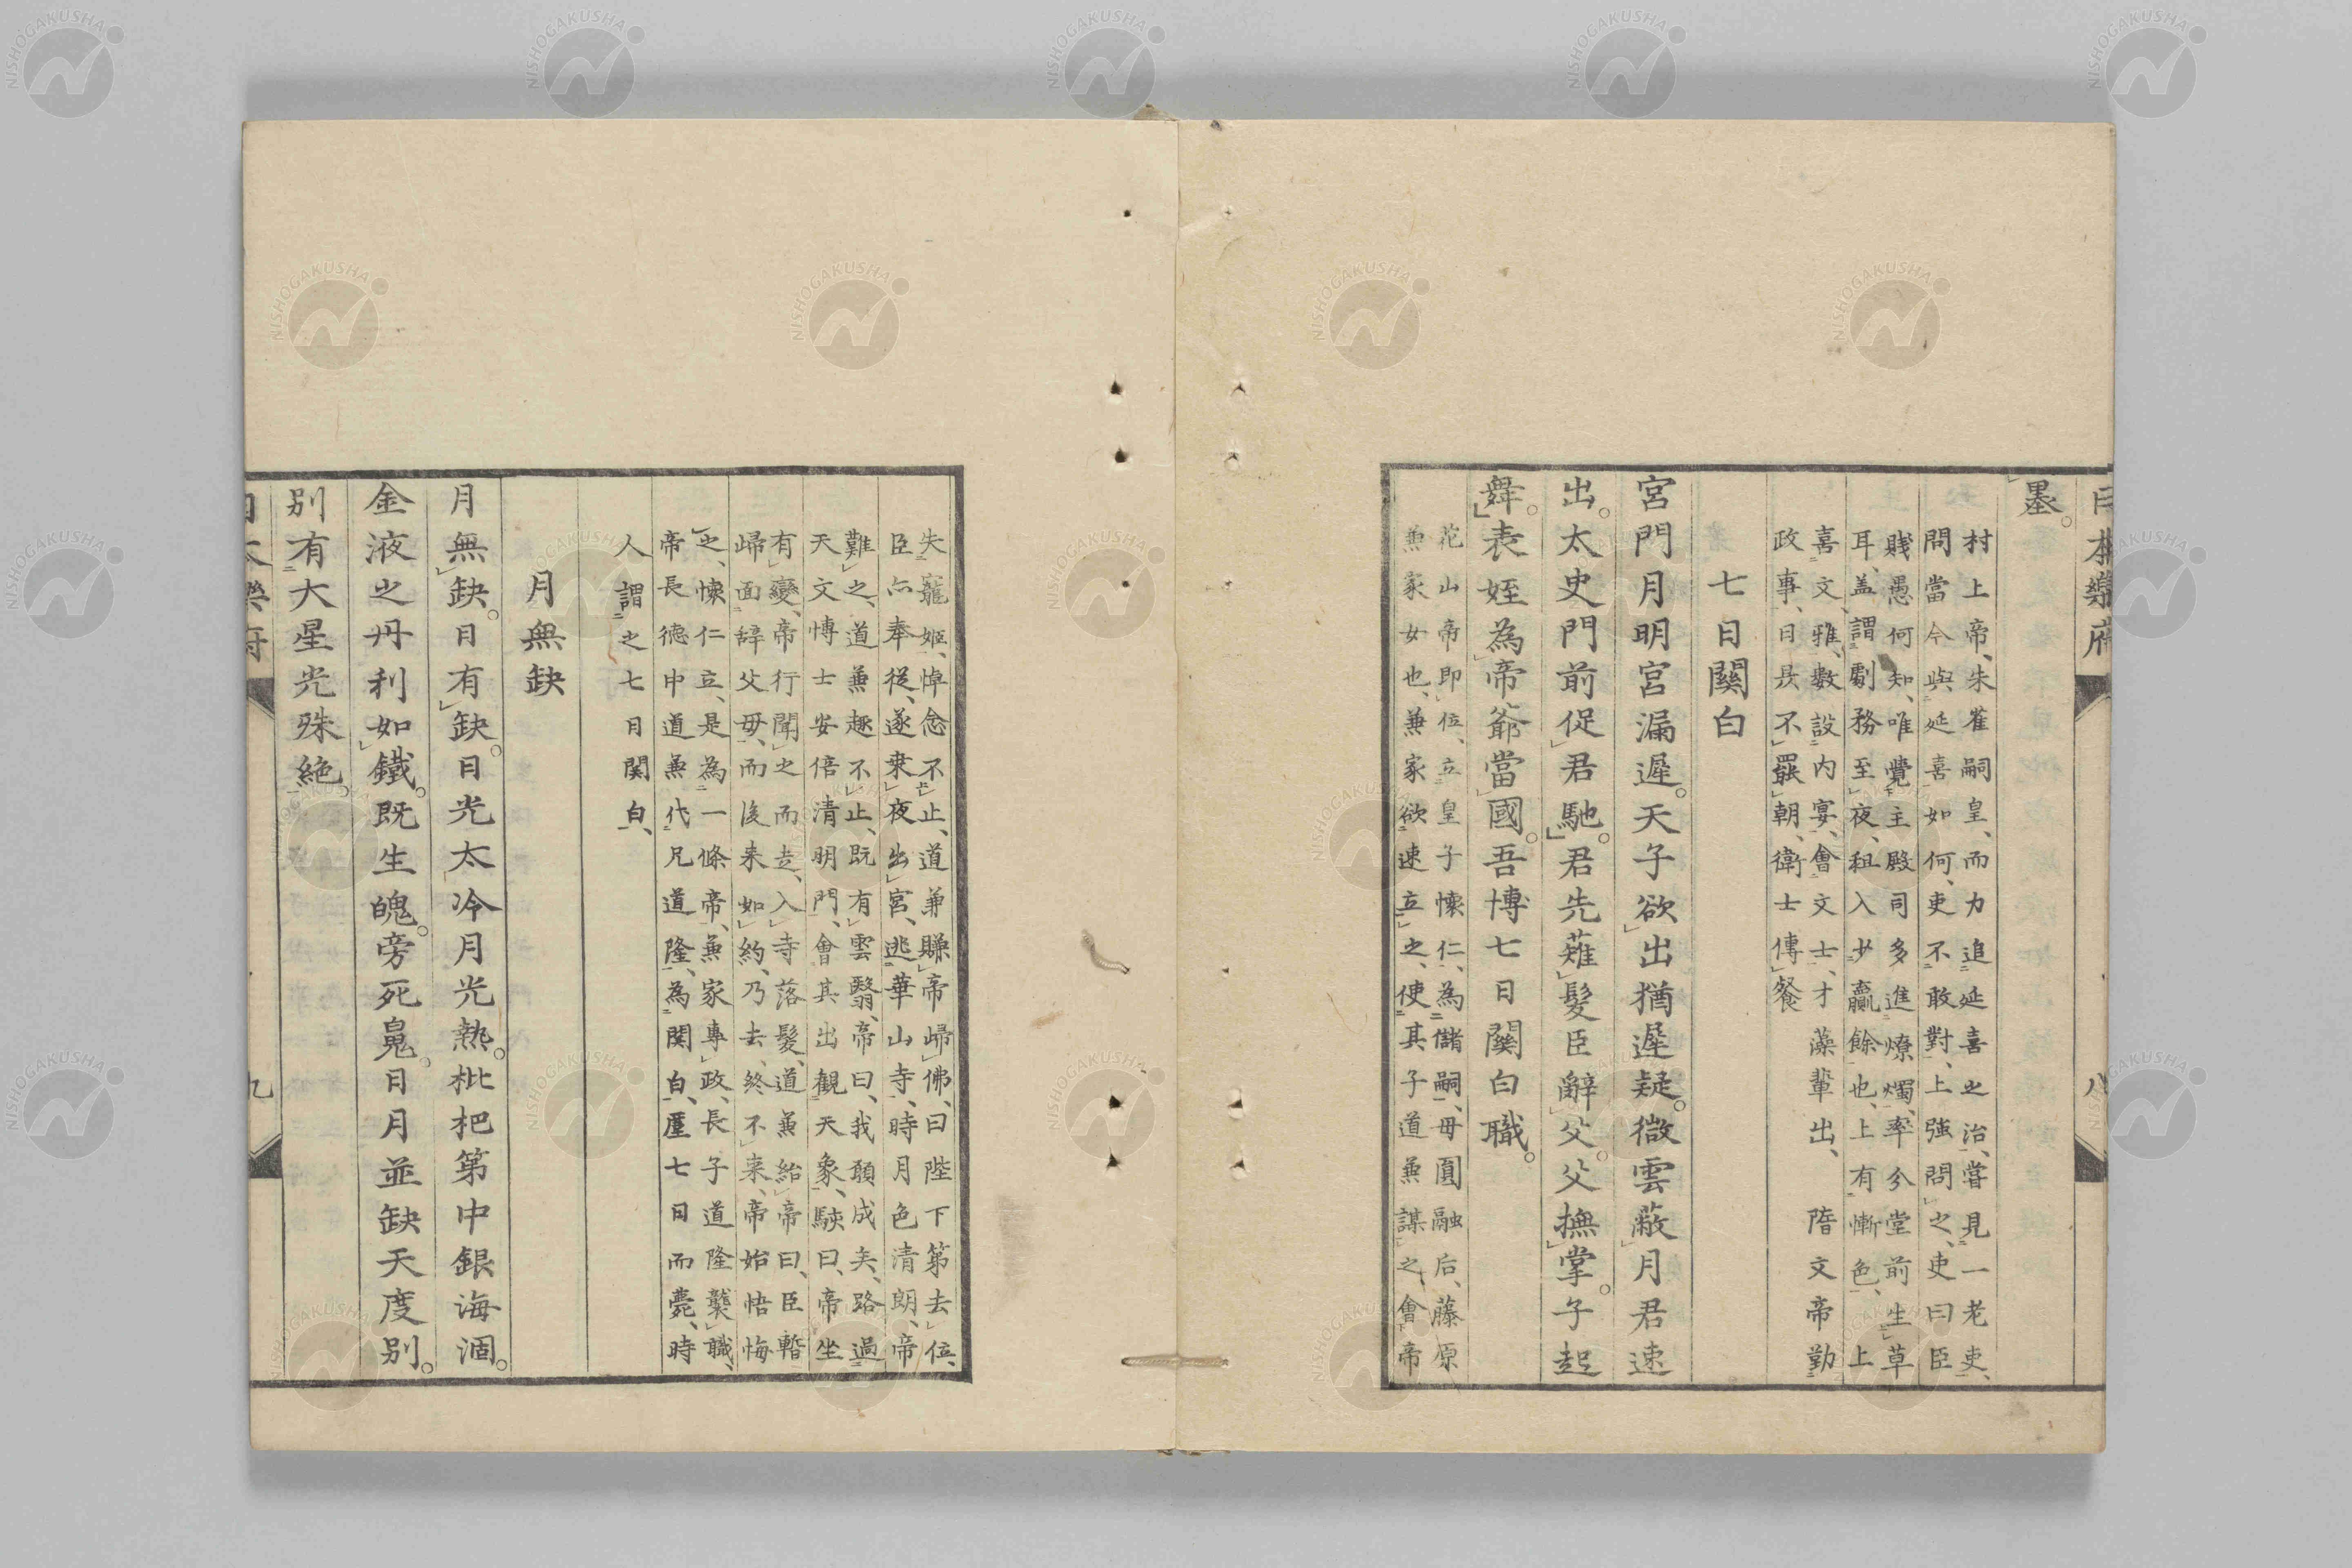 日本樂府
八
墨。
村上帝、朱雀嗣皇、而力追延喜之治、嘗見一老吏、
問當今與延喜如何、吏不敢對、上強問之、吏曰臣
賤愚何知、唯覺主殿司多進燎燭、率分堂前生草
耳、蓋謂劇務至夜、租入少贏餘也、上有慚色、上
喜文雅、數設内宴、會文士、才藻輩出、隋文帝勤
政事、日昃不罷朝、衛士傳餐
七日關白
宮門月明宮漏遲。天子欲出猶遲疑。微雲蔽月君速
出。太史門前促君馳。君先薙髮臣辭父。父撫掌。子起
舞。表姪為帝爺當國。吾博七日關白職。
花山帝即位、立皇子懷仁、為儲嗣、母圓融后、藤原
兼家女也、兼家欲速立之、使其子道兼謀之、會帝
失寵姬、悼念不止、道兼賺帝歸佛、曰陛下第去位、
臣亦奉從、遂乘夜出宮、逃華山寺、時月色清朗、帝
難之、道兼趣不止、既有雲翳、帝曰、我願成矣、路過
天文博士安倍清明門、會其出觀天象、駭曰、帝坐
有變、帝行聞之而走、入寺落髮、道兼紿帝曰、臣暫
歸面辞父母、而後来如約、乃去、終不来、帝始悟悔
之、懷仁立、是為一條帝、兼家專政、長子道隆襲職、
帝長德中道兼代兄道隆、為関白、厪七日而薨、時
人謂之七日関白、
月無缺
月無缺。日有缺。日光太冷月光熱。枇杷第中銀海涸。
金液之丹利如鐵。既生魄。旁死魄。日月並缺天度別。
別有大星光殊絶。
日本樂府
九